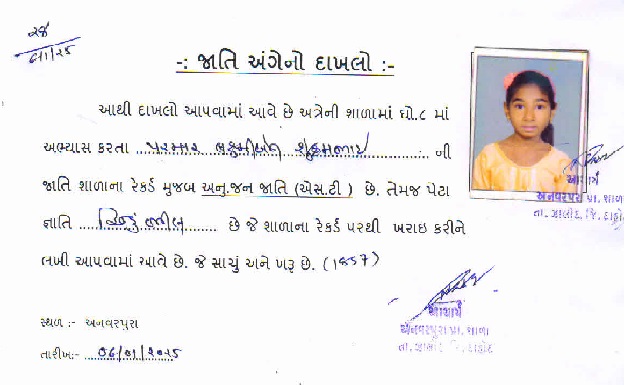 -: જાતિ અંગેનો દાખલો :-
આથી દાખલો આપવામાં આવે છે અત્રેની શાળામાં ધો.૮ માં
અભ્યાસ કરતા પરમાર લક્ષ્મીબેન ની
જાતિ શાળાના રેકર્ડ મુજબ અનુ.જન જાતિ (એસ.ટી) છે. તેમજ પેટા
જ્ઞાતિ હિન્દુ ભીલ છે જે શાળાના રેકર્ડ પરથી ખરાઇ કરીને
લખી આપવામાં આવે છે. જે સાચું અને ખરૂ છે.
આચાર્ય
અનવરપુરા પ્રા. શાળા
તા. ઝાલોદ, જિ. દાહોદ
સ્થળ :- અનવરપુરા
તારીખ:- ૦૬/૦૧/૨૦૨૫
આચાર્ય
અનવરપુરા પ્રા. શાળા
તા. ઝાલોદ જિ. દાહોદ